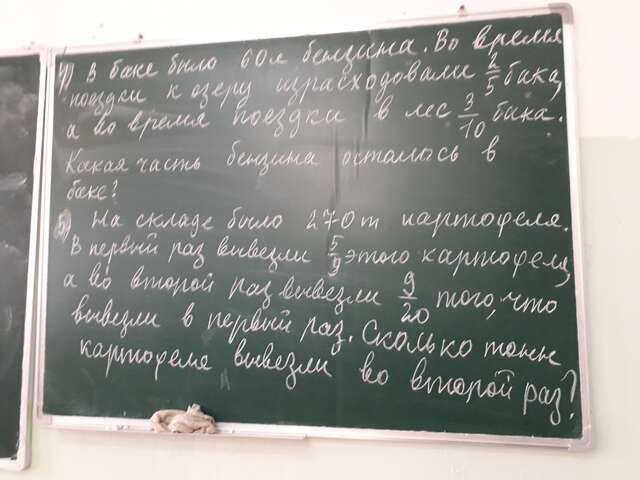 4) В баке было 60 л бензина. Во время
поездки к озеру израсходовали 2/5 бака,
а во время поездки в лес 3/10 бака.
Какая часть бензина осталось в
баке?
5) На складе было 270 т картофеля.
В первый раз вывезли 5/9 этого картофеля,
а во второй раз вывезли 9/20 того, что
вывезли в первый раз. Сколько тонн
картофеля вывезли во второй раз?